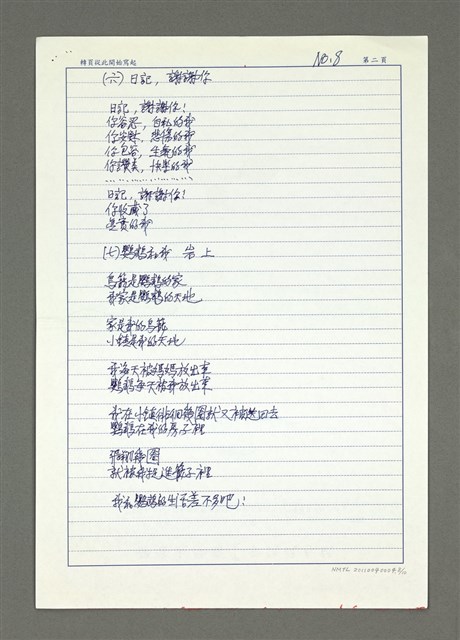 轉頁從此開始寫起
NO.8
第二頁
(六)日記,謝謝你
日記,謝謝你!
你容忍,自私的我
你安慰,悲傷的我
你包容,生氣的我
你讚美,快樂的我
………………
日記,謝謝你!
你收藏了
是實的我
(七)鸚鵡和我 岩上
鳥籠是鸚鵡的家
我家是鸚鵡的天地
家是我的鳥籠
小鎮是我的天地
我每天被媽媽放出來
鸚鵡每天被我放出來
我在小鎮徘徊幾圈就又被趕回去
鸚鵡在我的房子裡
幾圈
就被我捉進籠子裡
我和鸚鵡的生活差不多吧!